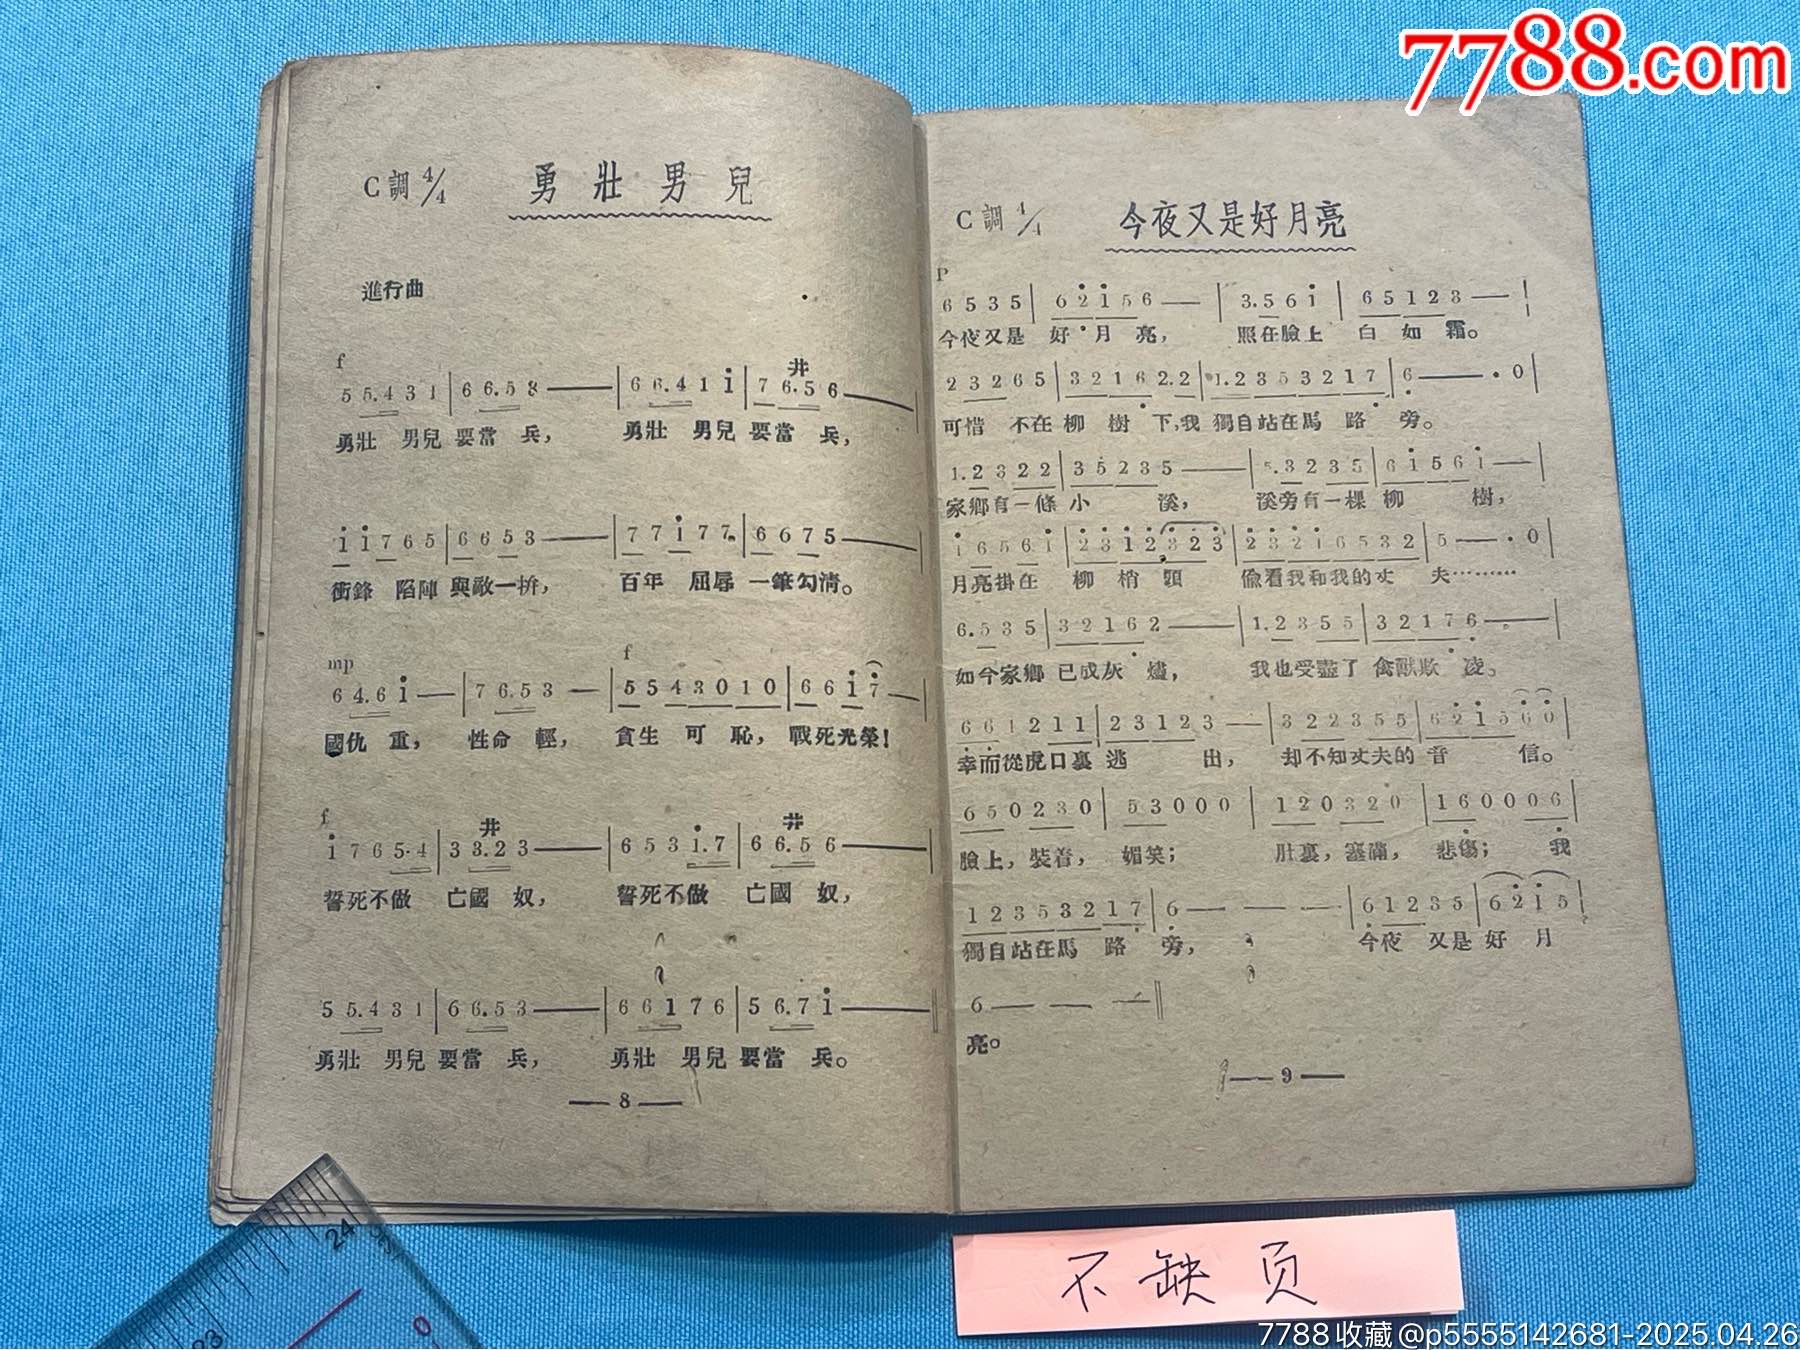 7788.com
C調 4/4 勇壯男兒
進行曲
f
5 5.4 3 1 | 6 6.5 8 —— | 6 6.4 1 i | 7 6.5 6 —— |
勇壯 男兒 要當 兵， 勇壯 男兒 要當 兵，
i i 7 6 5 | 6 6 5 3 —— | 7 7 i 7 7 | 6 6 7 5 —— |
衝鋒 陷陣 與敵一拚， 百年 屈辱 一筆勾清。
mp f
6 4.6 i — | 7 6.5 3 — | 5 5 4 3 0 1 0 | 6 6 i 7 — |
國仇 重， 性命 輕， 貪生 可 恥，戰死光榮！
f
i 7 6 5.4 | 3 3.2 3 —— | 6 5 3 i.7 | 6 6.5 6 —— |
誓死不做 亡國 奴， 誓死不做 亡國 奴，
5 5.4 3 1 | 6 6.5 3 —— | 6 6 1 7 6 | 5 6.7 i —— ‖
勇壯 男兒 要當 兵， 勇壯 男兒 要當 兵。
— 8 —
C調 4/4 今夜又是好月亮
P
6 5 3 5 | 6 2 i 5 6 — | 3.5 6 i | 6 5 1 2 3 — |
今夜又是 好 月 亮， 照在臉上 白 如 霜。
2 3 2 6 5 | 3 2 1 6 2.2 | 1.2 3 5 3 2 1 7 | 6 —— · 0 |
可惜 不在 柳 樹 下，我 獨自站在馬 路 旁。
1.2 3 2 2 | 3 5 2 3 5 —— | 5.3 2 3 5 | 6 i 5 6 i — |
家鄉有一條 小 溪， 溪旁有一棵 柳 樹，
i 6 5 6 i | 2 3 1 2 3 2 3 | 2 3 2 i 6 5 3 2 | 5 — · 0 |
月亮掛在 柳 梢 頭 偷看我和我的丈 夫………
6.5 3 5 | 3 2 1 6 2 —— | 1.2 3 5 5 | 3 2 1 7 6 —— |
如今家鄉 已成灰 燼， 我也受盡了 禽獸欺 凌。
6 6 1 2 1 1 | 2 3 1 2 3 — | 3 2 2 3 5 5 | 6 2 i 5 6 0 |
幸而從虎口裏 逃 出， 却不知丈夫的 音 信。
6 5 0 2 3 0 | 5 3 0 0 0 | 1 2 0 3 2 0 | 1 6 0 0 0 6 |
臉上，裝着， 媚笑； 肚裏，塞滿， 悲傷； 我
1 2 3 5 3 2 1 7 | 6 — — — | 6 1 2 3 5 | 6 2 i 5 |
獨自站在馬 路 旁， 今夜 又是 好 月
6 — — — ‖
亮。
— 9 —
不缺页
24
23
0
7788收藏@p5555142681-2025.04.26